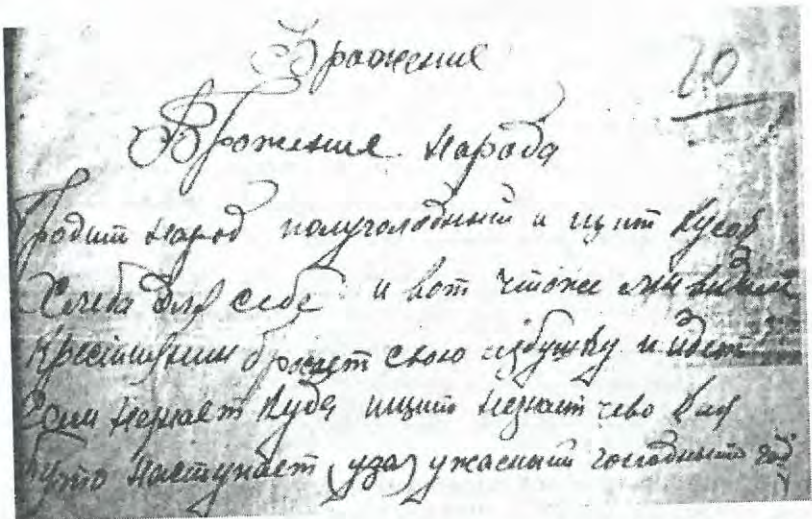 Брожение
20
Брожения народа
Бродит народ полуголодный и ищит кусоб
Хлеба для себе и вот чтоже мы видим
Кресиянин бросает свою избушку и идет
Сам незнает Куда ищит незнаит чево Как
буто настунает (уза) ужасный голодный год